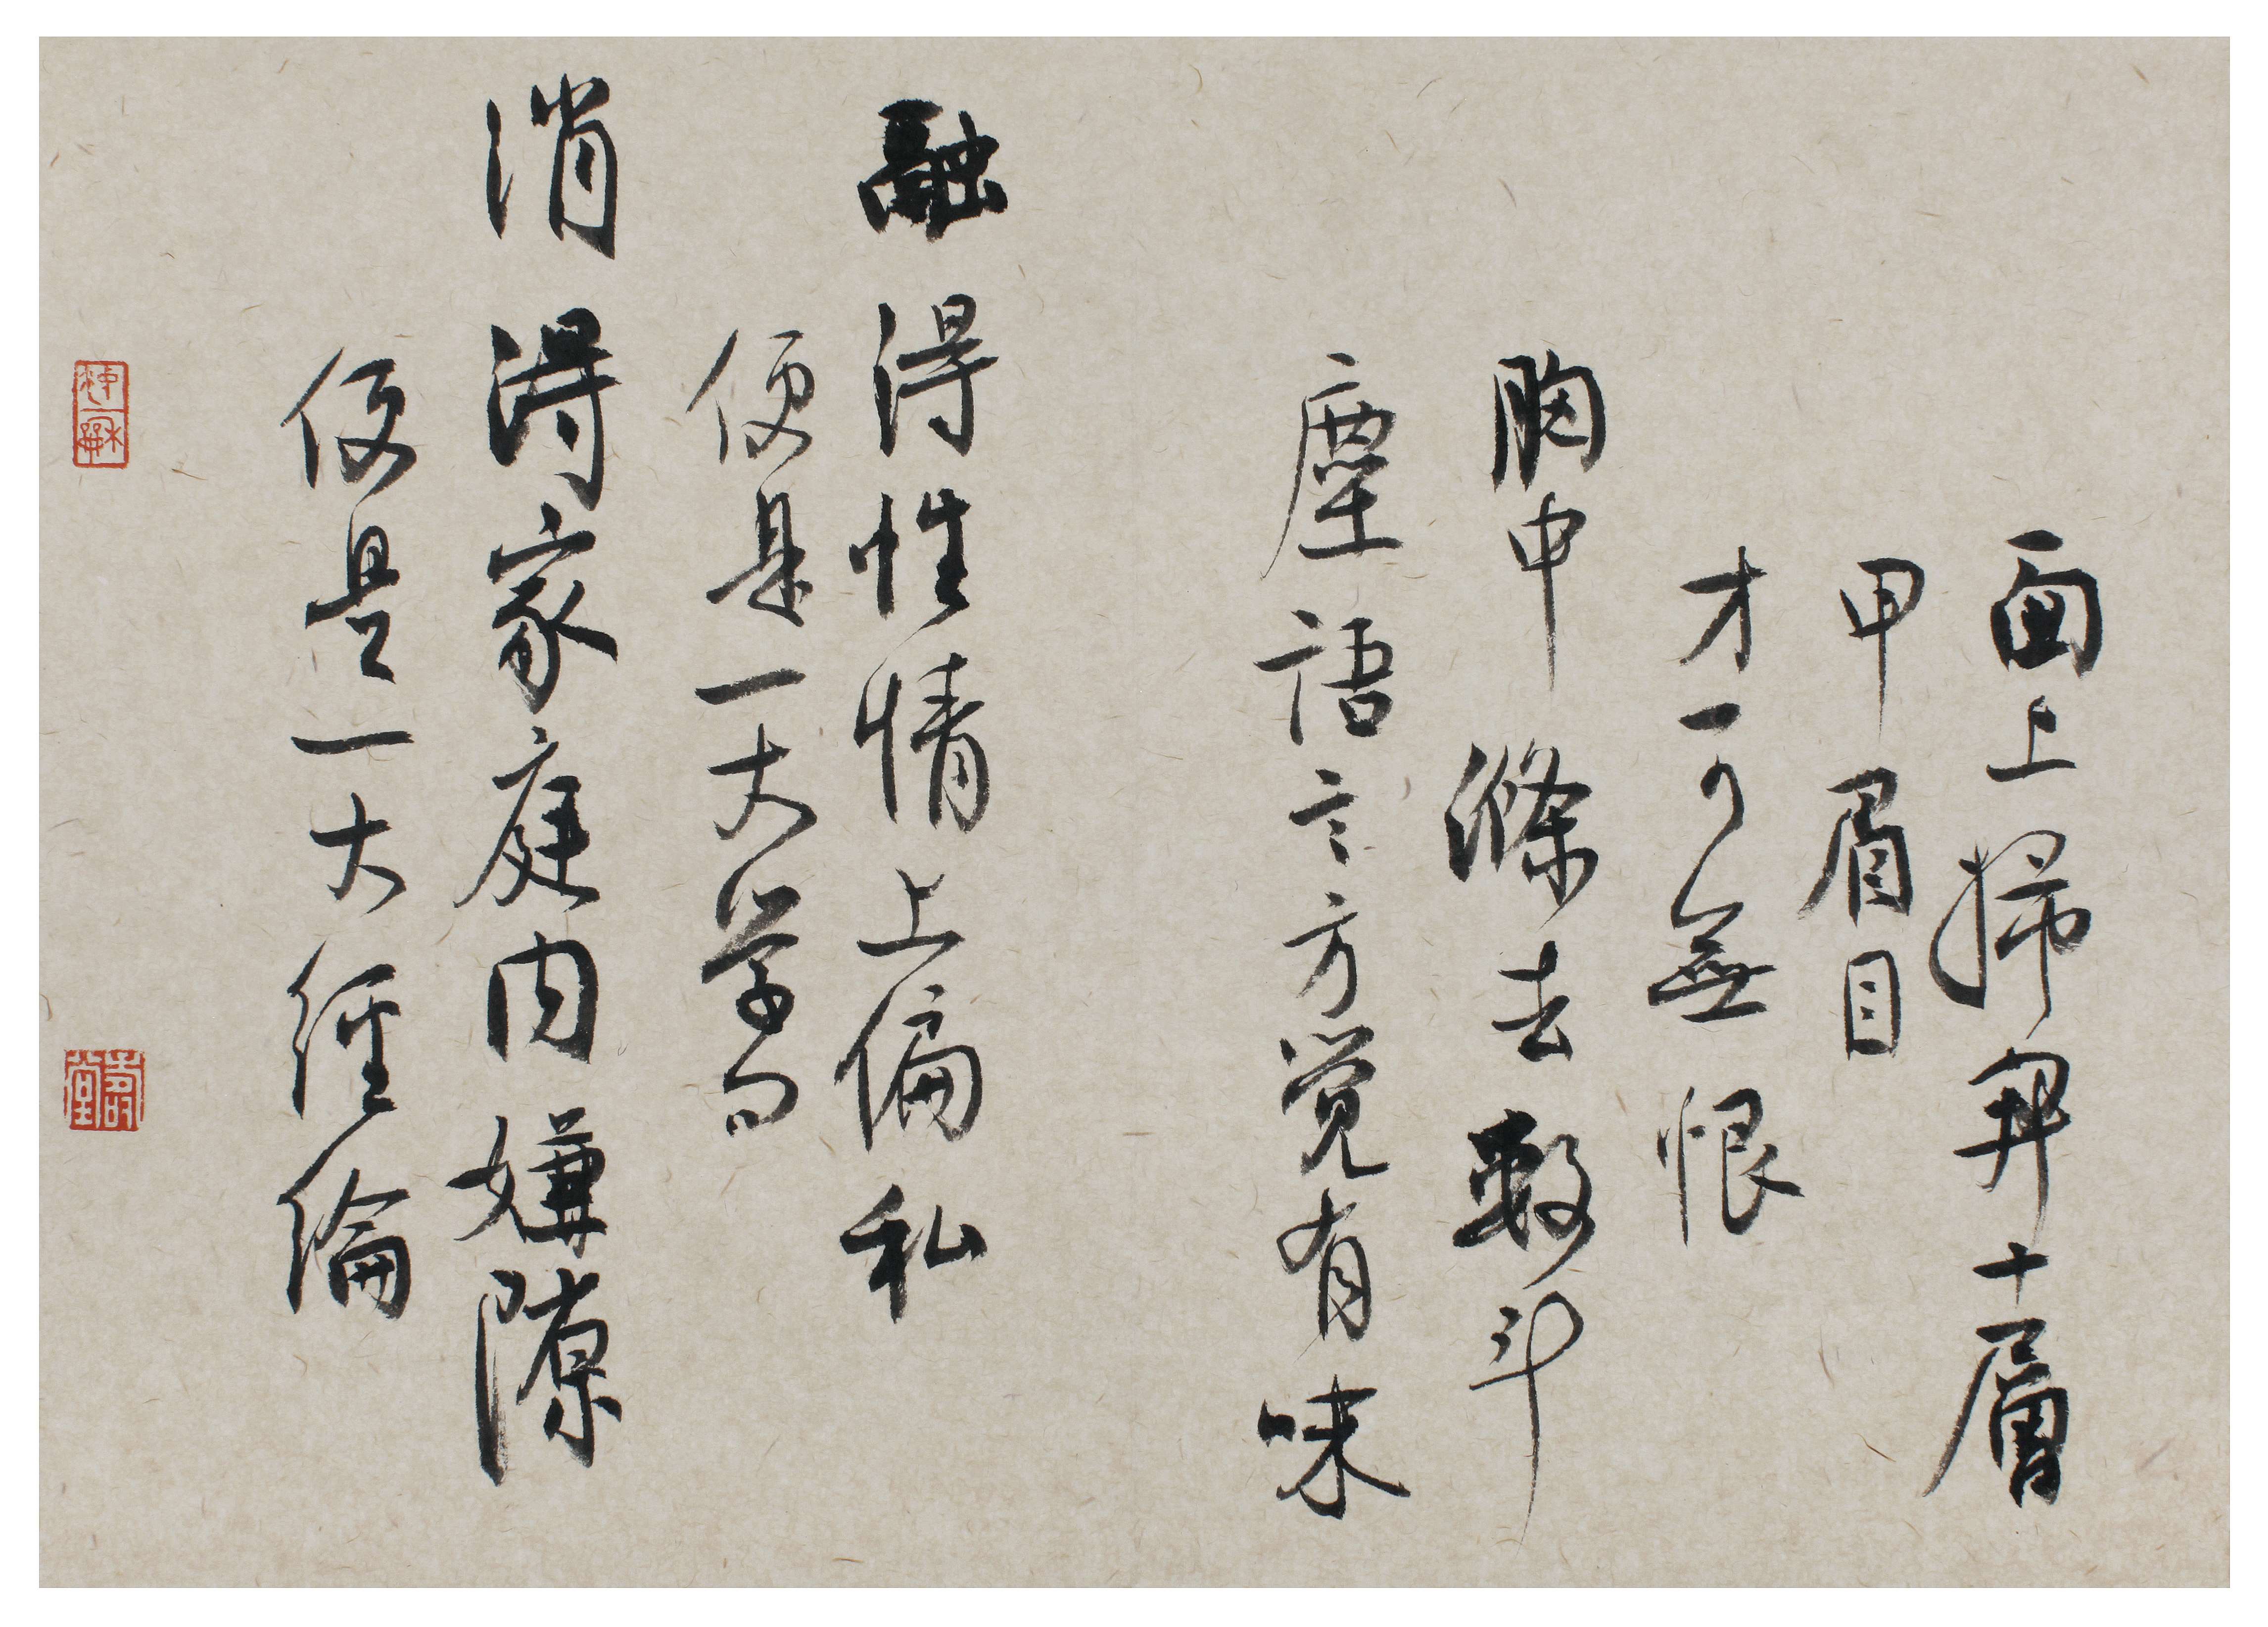 面上掃開十層
甲眉目
才可無恨
胸中滌去數斗
塵語言方觉有味
融得性情上偏私
便是一大学问
消得家庭内嫌隙
便是一大經綸